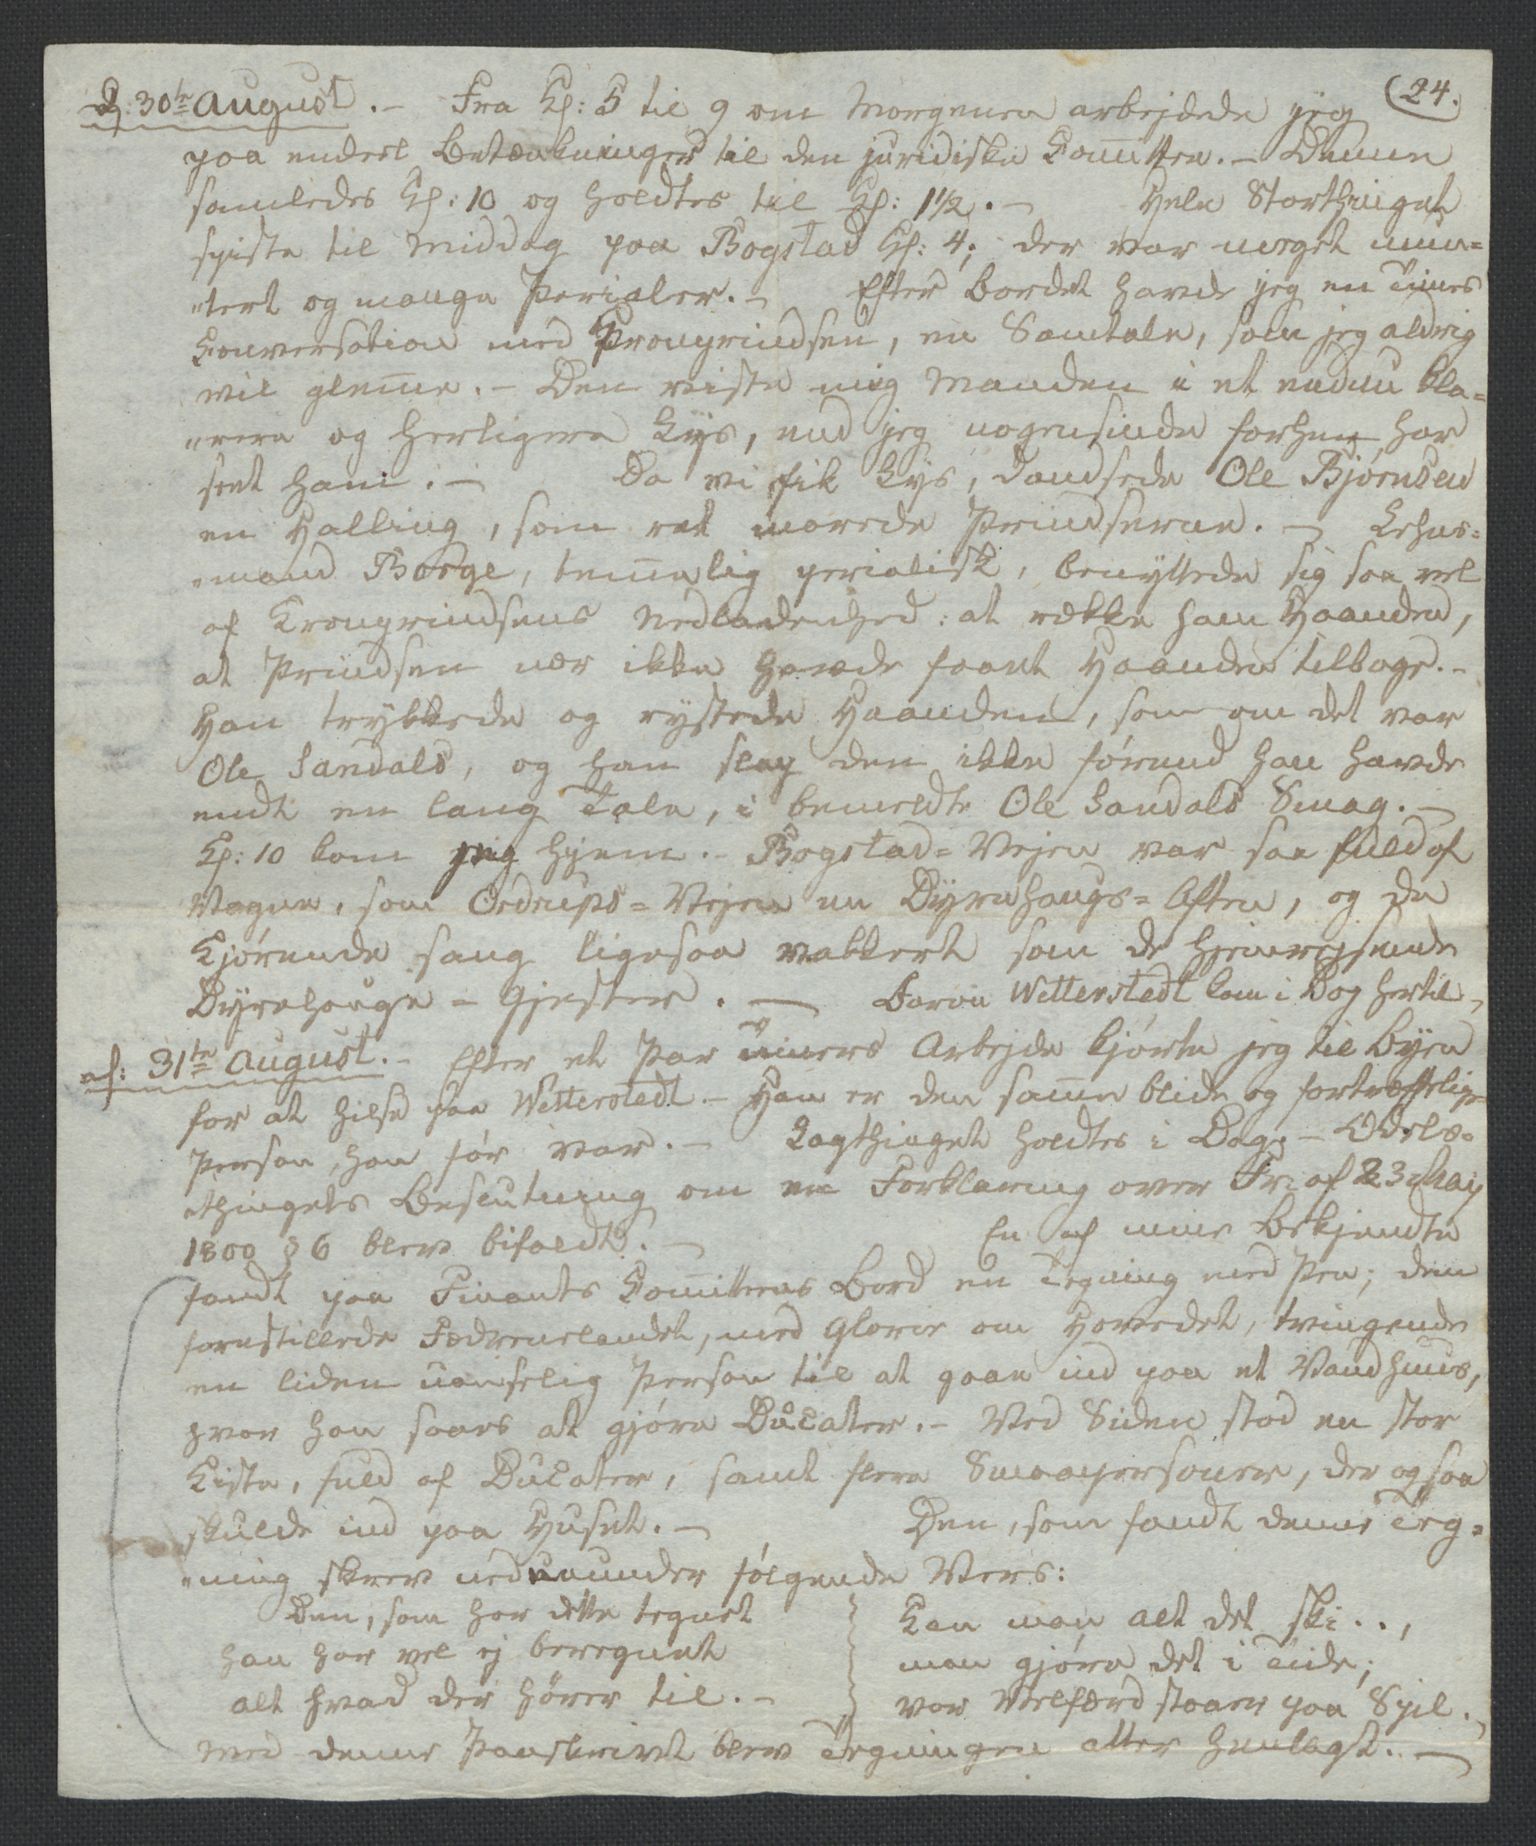 24.
D: 30te August. – Fra Kl: 5 til 9 om Morgenen arbejdede jeg
paa endeel Betænkninger til den juridiske Com̄ittee. – Denne
samledes Kl: 10 og holdtes til Kl: 1½. – Hele Storthinget
spiste til Middag paa Bogstad Kl: 4; der var meget mun=
„tert og mange Perialer. – Efter Bordet havde jeg en Times
Conversation med Cronprindsen, en Samtale, som jeg aldrig
vil glem̄e. – Den viiste mig Manden i et endnu kla=
„rere og herligere Lys, end jeg nogensinde forhen har
seet ham. – Da vi fik Lys, dandsede Ole Bjørnsen
en Halling, som ret morede Prindserne. – Lehns=
„mand Borge, tem̄elig perialisk, benyttede sig saa vel
af Cronprindsens Nedladenhed: at række ham Haanden,
at Prindsen nær ikke havde faaet Haanden tilbage. –
Han trykkede og rystede Haanden, som om det var
Ole Sandals, og han slap den ikke førend han havde
endt en lang Tale, i bemeldte Ole Sandals Smag. –
Kl: 10 kom jeg hjem. – Bogstad=Vejen var saa fuld af
Vogne, som Ordrups=Vejen en Dyrehaugs=Aften, og de
Kjørende sang ligesaa vakkert som de hjemrejsende
Dyrehauge=Gjester. – Baron Wetterstedt kom i Dag hertil. –
d: 31te August. – Efter et Par Timers Arbejde kjørte jeg til Byen
for at hilse paa Wetterstedt. – Han er den sam̄e blide og fortræffelige
Person, han før var. – Lagthinget holdtes i Dag. – Odels=
„thingets Beslutning om en Forklaring over Fr: af 23 May
1800 § 6 blev bifaldt. – En af mine Bekjendte
fandt paa Finants Com̄itteens Bord en Tegning med Pen; den
forestillede Fædrenelandet, med Glorie om Hovedet, tvingende
en liden uanselig Person til at gaae ind paa et Vandhuus,
hvor han saaes at gjøre Ducater. – Ved Siden stod en stor
Kiste, fuld af Ducater, samt flere Smaapersoner, der ogsaa
skulde ind paa Huset. – Den, som fandt denne Teg=
„ning skrev nedenunder følgende Vers:
Den, som har dette tegnet
han har vel ej beregnet
alt hvad der hører til. –
Kan man alt det ski..,
man gjøre det i Tide;
vor Velfærd staaer paa Spil. –
Med denne Paaskrivt blev Tegningen atter henlagt. –